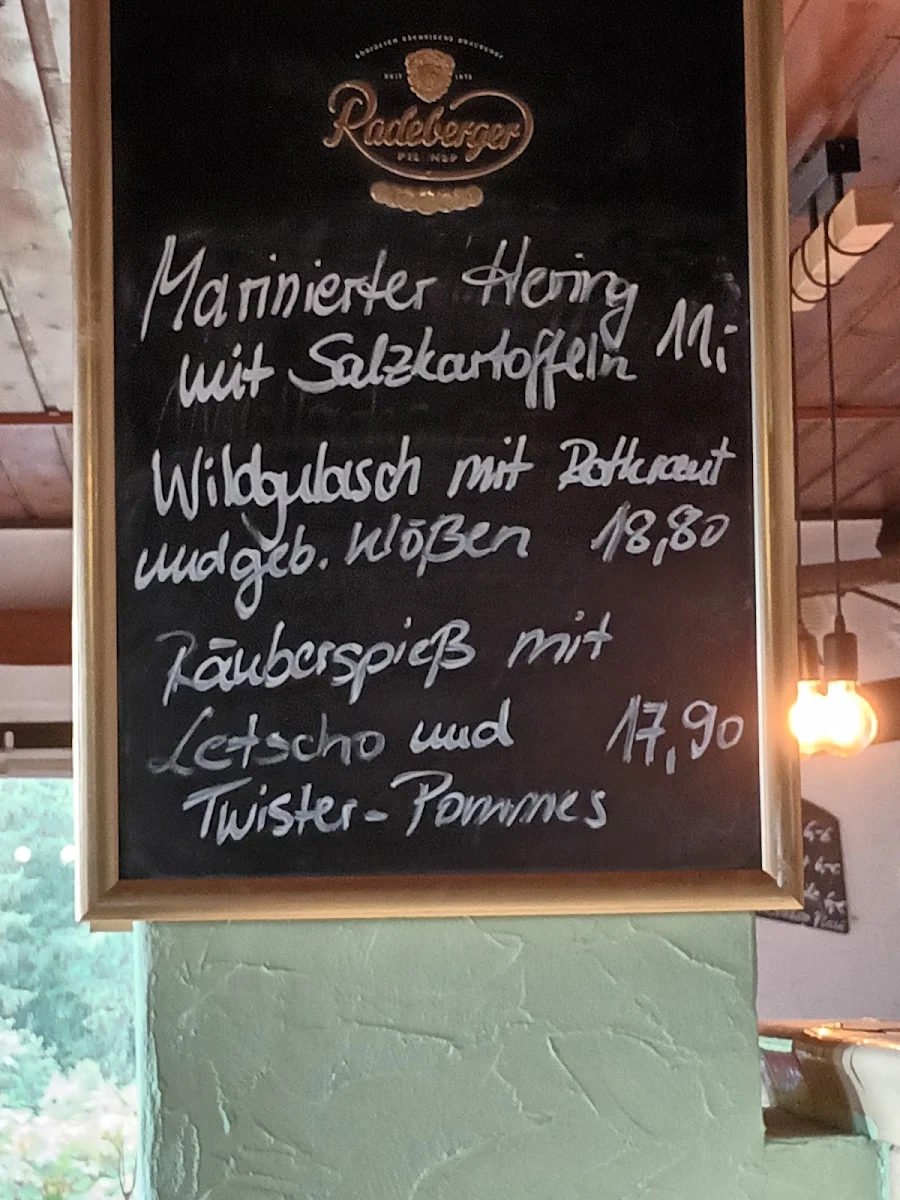 SEIT
Radeberger
PILSNER
Marinierter Hering
mit Salzkartoffeln 11,-
Wildgulasch mit Rotkraut
und geb. Klößen 18,80
Räuberspieß mit
Letscho und 17,90
Twister-Pommes